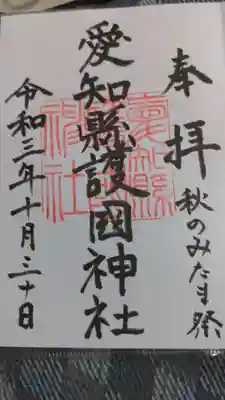 奉拝
秋のみたま祭
愛知縣護國神社
令和三年十月三十日